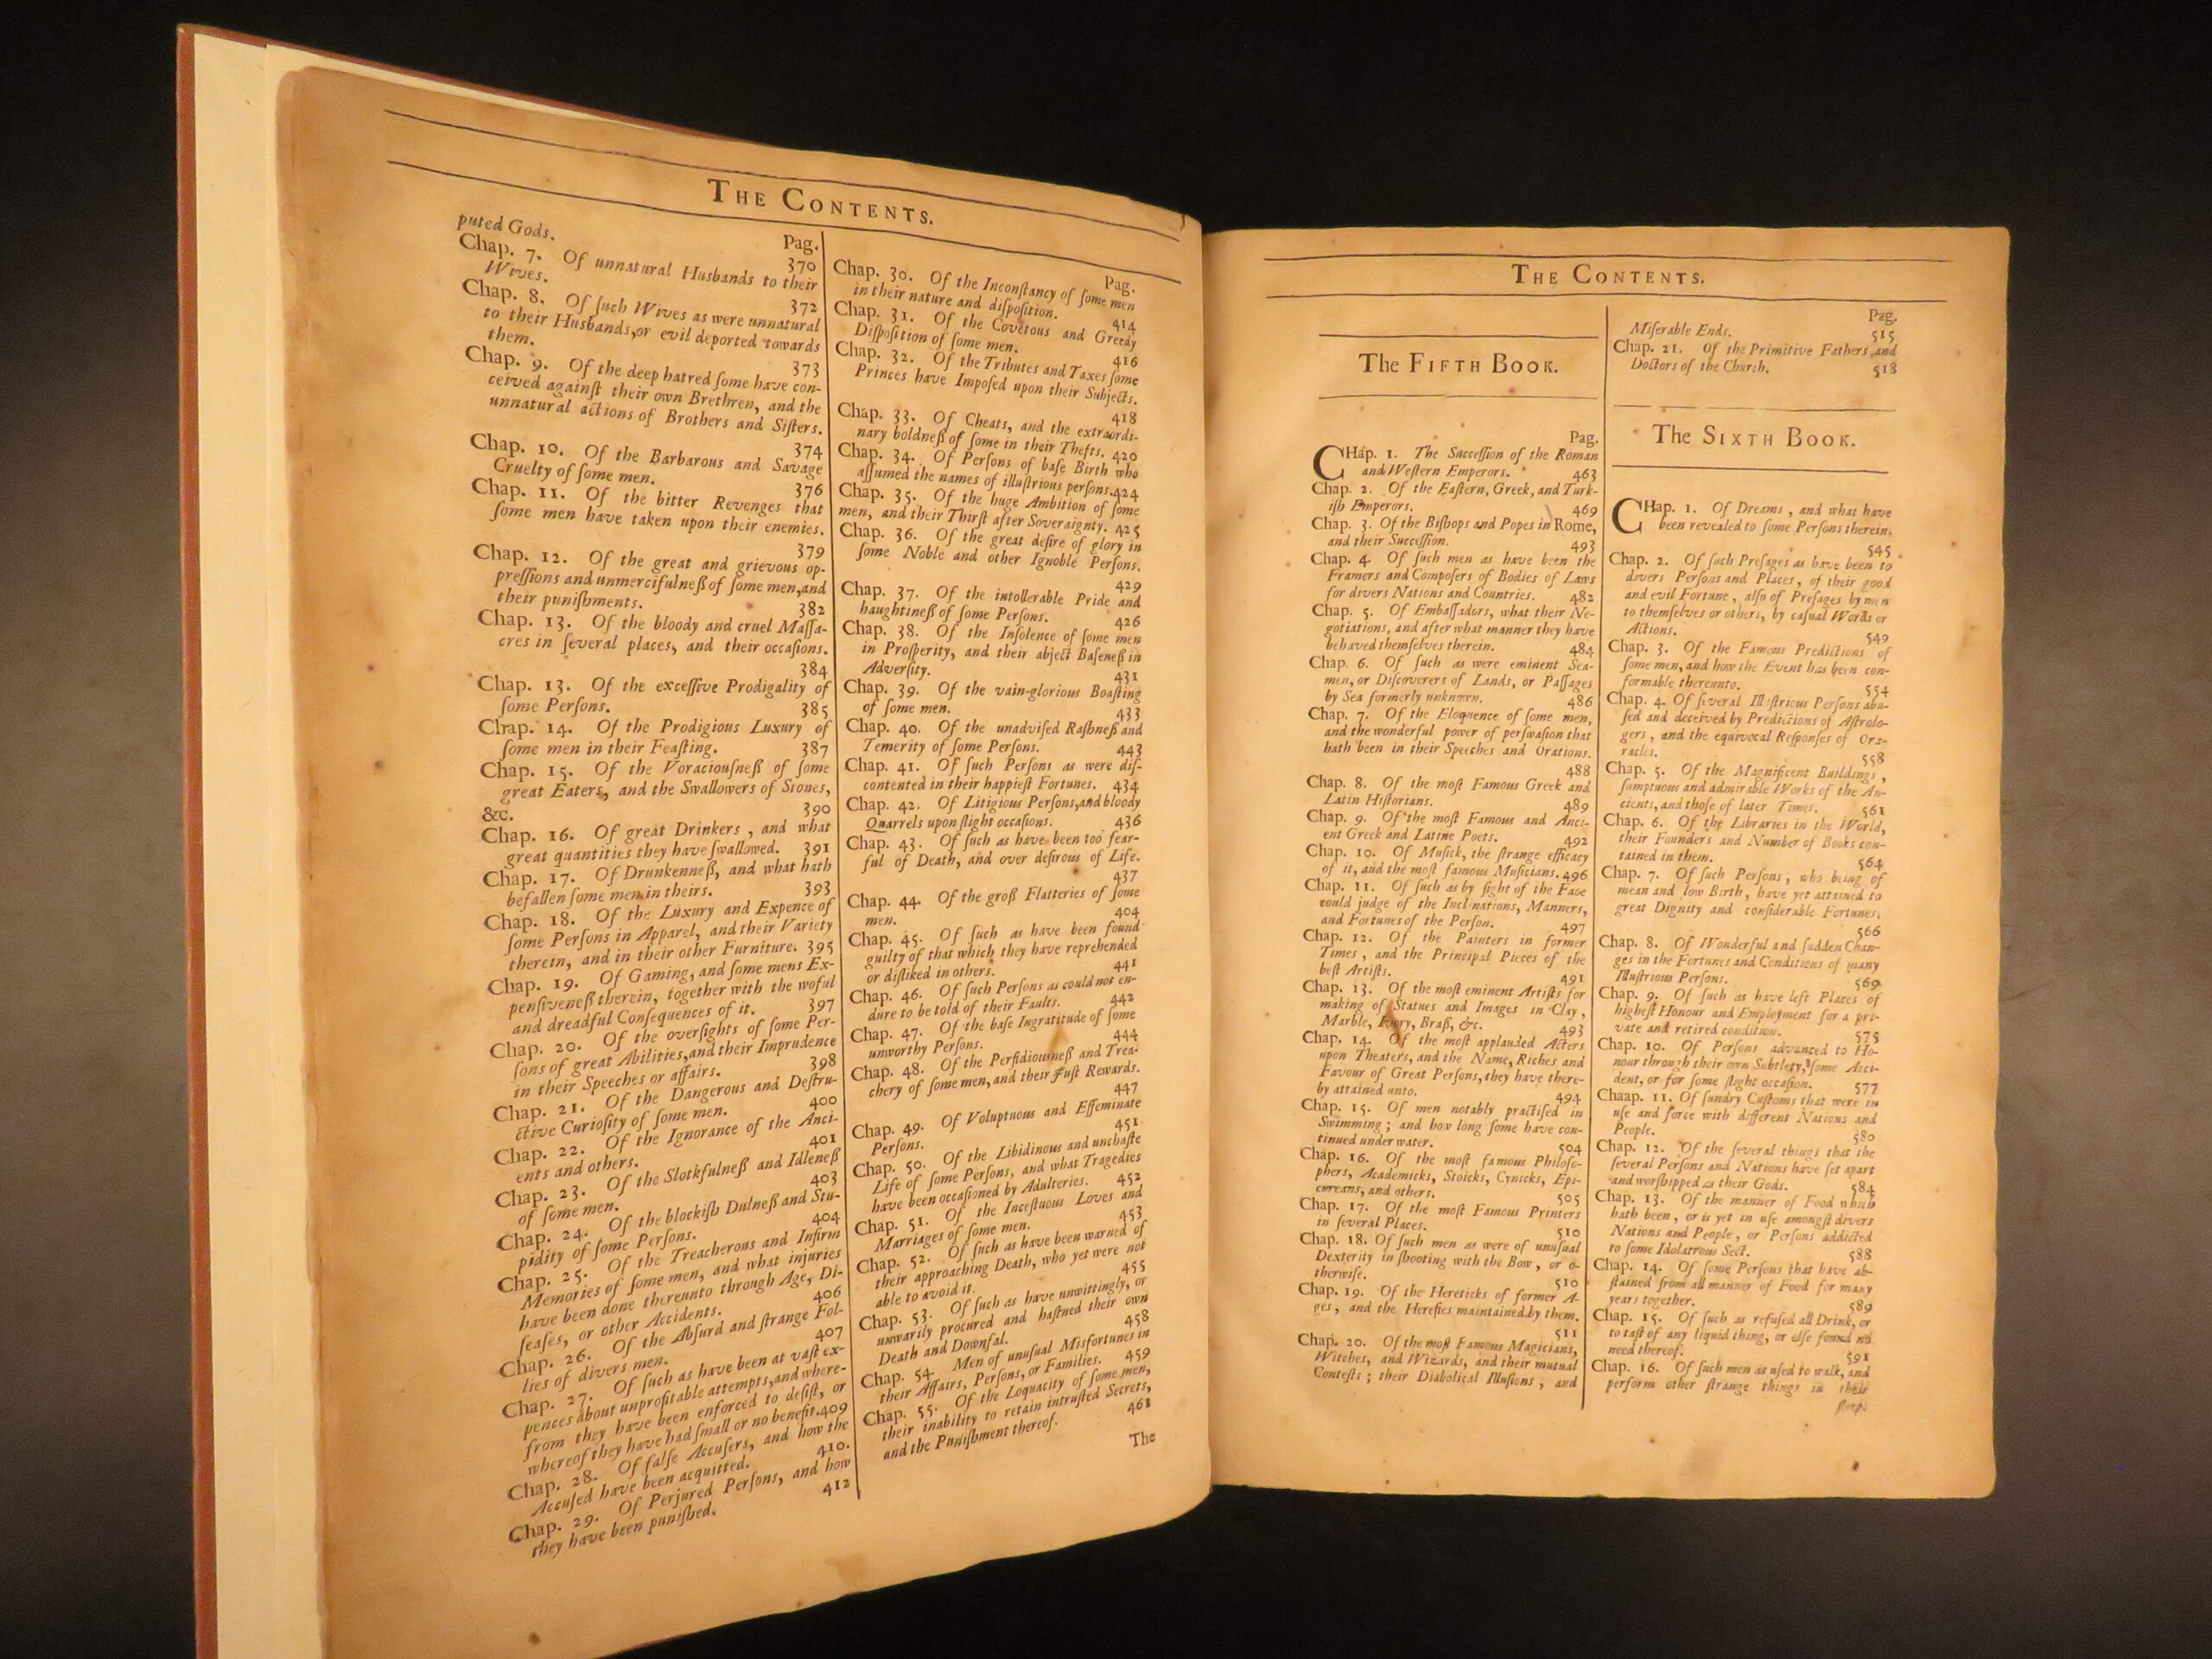 THE CONTENTS.
puted Gods.
Pag.
370
Chap. 7. Of unnatural Husbands to their
Wives.
372
Chap. 8. Of ſuch Wives as were unnatural
to their Husbands,or evil deported towards
them.
373
Chap. 9. Of the deep hatred ſome have con-
ceived againſt their own Brethren, and the
unnatural actions of Brothers and Siſters.
374
Chap. 10. Of the Barbarous and Savage
Cruelty of ſome men.
376
Chap. 11. Of the bitter Revenges that
ſome men have taken upon their enemies.
379
Chap. 12. Of the great and grievous op-
preſſions and unmercifulneß of ſome men,and
their puniſhments. 382
Chap. 13. Of the bloody and cruel Maſſa-
cres in ſeveral places, and their occaſions.
384
Chap. 13. Of the exceſſive Prodigality of
ſome Perſons. 385
Chap. 14. Of the Prodigious Luxury of
ſome men in their Feaſting. 387
Chap. 15. Of the Voraciouſneß of ſome
great Eaters, and the Swallowers of Stones,
&c. 390
Chap. 16. Of great Drinkers , and what
great quantities they have ſwallowed. 391
Chap. 17. Of Drunkenneß, and what hath
befallen ſome men in theirs. 393
Chap. 18. Of the Luxury and Expence of
ſome Perſons in Apparel, and their Variety
therein, and in their other Furniture. 395
Chap. 19. Of Gaming, and ſome mens Ex-
penſiveneß therein, together with the woful
and dreadful Conſequences of it. 397
Chap. 20. Of the overſights of ſome Per-
ſons of great Abilities,and their Imprudence
in their Speeches or affairs. 398
Chap. 21. Of the Dangerous and Deſtru-
ctive Curioſity of ſome men. 400
Chap. 22. Of the Ignorance of the Anci-
ents and others. 401
Chap. 23. Of the Slothfulneß and Idleneß
of ſome men. 403
Chap. 24. Of the blockiſh Dulneß and Stu-
pidity of ſome Perſons. 404
Chap. 25. Of the Treacherous and Infirm
Memories of ſome men, and what injuries
have been done thereunto through Age, Di-
ſeaſes, or other Accidents. 406
Chap. 26. Of the Abſurd and ſtrange Fol-
lies of divers men. 407
Chap. 27. Of ſuch as have been at vaſt ex-
pences about unprofitable attempts,and where-
from they have been enforced to deſiſt, or
whereof they have had ſmall or no benefit.409
Chap. 28. Of falſe Accuſers, and how the
Accuſed have been acquitted. 410.
Chap. 29. Of Perjured Perſons, and how
they have been puniſhed. 412
Pag.
Chap. 30. Of the Inconſtancy of ſome men
in their nature and diſpoſition. 414
Chap. 31. Of the Covetous and Greedy
Diſpoſition of ſome men. 416
Chap. 32. Of the Tributes and Taxes ſome
Princes have Impoſed upon their Subjects.
418
Chap. 33. Of Cheats, and the extraordi-
nary boldneß of ſome in their Thefts. 420
Chap. 34. Of Perſons of baſe Birth who
aſſumed the names of illuſtrious perſons.424
Chap. 35. Of the huge Ambition of ſome
men, and their Thirſt after Soveraignty. 425
Chap. 36. Of the great deſire of glory in
ſome Noble and other Ignoble Perſons.
429
Chap. 37. Of the intollerable Pride and
haughtineß of ſome Perſons. 426
Chap. 38. Of the Inſolence of ſome men
in Proſperity, and their abject Baſeneß in
Adverſity. 431
Chap. 39. Of the vain-glorious Boaſting
of ſome men. 433
Chap. 40. Of the unadviſed Raſhneß and
Temerity of ſome Perſons. 443
Chap. 41. Of ſuch Perſons as were diſ-
contented in their happieſt Fortunes. 434
Chap. 42. Of Litigious Perſons,and bloody
Quarrels upon ſlight occaſions. 436
Chap. 43. Of ſuch as have been too fear-
ful of Death, and over deſirous of Life.
437
Chap. 44. Of the groß Flatteries of ſome
men. 404
Chap. 45. Of ſuch as have been found
guilty of that which they have reprehended
or diſliked in others. 441
Chap. 46. Of ſuch Perſons as could not en-
dure to be told of their Faults. 442
Chap. 47. Of the baſe Ingratitude of ſome
unworthy Perſons. 444
Chap. 48. Of the Perfidiouſneß and Trea-
chery of ſome men, and their Juſt Rewards.
447
Chap. 49. Of Voluptuous and Effeminate
Perſons. 451
Chap. 50. Of the Libidinous and unchaſte
Life of ſome Perſons, and what Tragedies
have been occaſioned by Adulteries. 452
Chap. 51. Of the Inceſtuous Loves and
Marriages of ſome men. 453
Chap. 52. Of ſuch as have been warned of
their approaching Death, who yet were not
able to avoid it. 455
Chap. 53. Of ſuch as have unwittingly, or
unwarily procured and haſtned their own
Death and Downfal. 458
Chap. 54. Men of unuſual Misfortunes in
their Affairs, Perſons, or Families. 459
Chap. 55. Of the Loquacity of ſome men,
their inability to retain intruſted Secrets,
and the Puniſhment thereof. 461
The
THE CONTENTS.
The FIFTH BOOK.
Pag.
CHap. 1. The Succeſſion of the Roman
and Weſtern Emperors. 463
Chap. 2. Of the Eaſtern, Greek, and Turk-
iſh Emperors. 469
Chap. 3. Of the Biſhops and Popes in Rome,
and their Succeſſion. 493
Chap. 4. Of ſuch men as have been the
Framers and Compoſers of Bodies of Laws
for divers Nations and Countries. 482
Chap. 5. Of Embaſſadors, what their Ne-
gotiations, and after what manner they have
behaved themſelves therein. 484
Chap. 6. Of ſuch as were eminent Sea-
men, or Diſcoverers of Lands, or Paſſages
by Sea formerly unknown. 486
Chap. 7. Of the Eloquence of ſome men,
and the wonderful power of perſwaſion that
hath been in their Speeches and Orations.
488
Chap. 8. Of the moſt Famous Greek and
Latin Hiſtorians. 489
Chap. 9. Of the moſt Famous and Anci-
ent Greek and Latine Poets. 492
Chap. 10. Of Muſick, the ſtrange efficacy
of it, and the moſt famous Muſicians. 496
Chap. 11. Of ſuch as by ſight of the Face
could judge of the Inclinations, Manners,
and Fortunes of the Perſon. 497
Chap. 12. Of the Painters in former
Times , and the Principal Pieces of the
beſt Artiſts. 491
Chap. 13. Of the moſt eminent Artiſts for
making of Statues and Images in Clay ,
Marble, Ivory, Braß, &c. 493
Chap. 14. Of the moſt applauded Acters
upon Theaters, and the Name, Riches and
Favour of Great Perſons,they have there-
by attained unto. 494
Chap. 15. Of men notably practiſed in
Swimming ; and how long ſome have con-
tinued under water. 504
Chap. 16. Of the moſt famous Philoſo-
phers, Academicks, Stoicks, Cynicks, Epi-
cureans, and others. 505
Chap. 17. Of the moſt Famous Printers
in ſeveral Places. 510
Chap. 18. Of ſuch men as were of unuſual
Dexterity in ſhooting with the Bow , or o-
therwiſe. 510
Chap. 19. Of the Hereticks of former A-
ges , and the Hereſies maintained by them.
511
Chap. 20. Of the moſt Famous Magicians,
Witches, and Wizards, and their mutual
Conteſts ; their Diabolical Illuſions , and
Pag.
Miſerable Ends. 515
Chap. 21. Of the Primitive Fathers and
Doctors of the Church. 518
The SIXTH BOOK.
CHap. 1. Of Dreams , and what have
been revealed to ſome Perſons therein.
545
Chap. 2. Of ſuch Preſages as have been to
divers Perſons and Places , of their good
and evil Fortune , alſo of Preſages by men
to themſelves or others, by caſual Words or
Actions. 549
Chap. 3. Of the Famous Predictions of
ſome men, and how the Event has been con-
formable thereunto. 554
Chap. 4. Of ſeveral Illuſtrious Perſons abu-
ſed and deceived by Predictions of Aſtrolo-
gers , and the equivocal Reſponſes of Ora-
racles. 558
Chap. 5. Of the Magnificent Buildings ,
ſumptuous and admirable Works of the An-
cients, and thoſe of later Times. 561
Chap. 6. Of the Libraries in the World,
their Founders and Number of Books con-
tained in them. 564
Chap. 7. Of ſuch Perſons , who being of
mean and low Birth , have yet attained to
great Dignity and conſiderable Fortunes.
566
Chap. 8. Of Wonderful and ſudden Chan-
ges in the Fortunes and Conditions of many
Illuſtrious Perſons. 569
Chap. 9. Of ſuch as have left Places of
higheſt Honour and Employment for a pri-
vate and retired condition. 575
Chap. 10. Of Perſons advanced to Ho-
nour through their own Subtlety, ſome Acci-
dent, or for ſome ſlight occaſion. 577
Chaap. 11. Of ſundry Cuſtoms that were in
uſe and force with different Nations and
People. 580
Chap. 12. Of the ſeveral things that the
ſeveral Perſons and Nations have ſet apart
and worſhipped as their Gods. 584
Chap. 13. Of the manner of Food which
hath been , or is yet in uſe amongſt divers
Nations and People , or Perſons addicted
to ſome Idolatrous Sect. 588
Chap. 14. Of ſome Perſons that have ab-
ſtained from all manner of Food for many
years together. 589
Chap. 15. Of ſuch as refuſed all Drink, or
to taſt of any liquid thing, or elſe found no
need thereof. 591
Chap. 16. Of ſuch men as uſed to walk, and
perform other ſtrange things in their
ſleep.